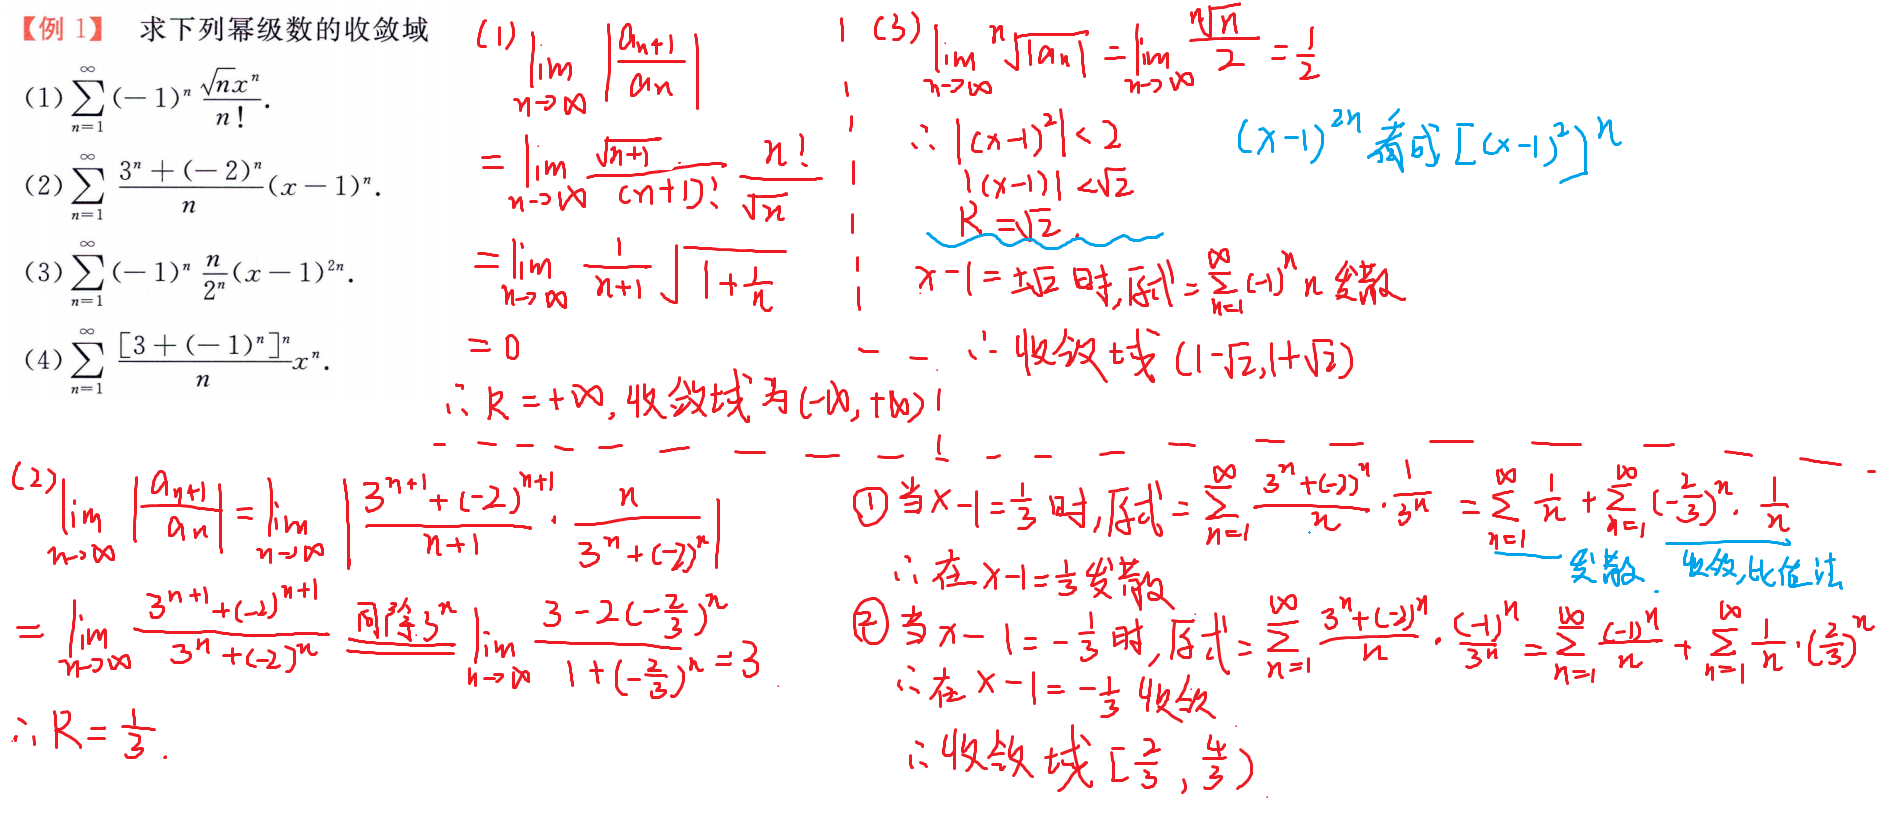 【例 1】 求下列幂级数的收敛域
(1) $\sum_{n=1}^{\infty}(-1)^n\frac{\sqrt{n}x^n}{n!}$.
(2) $\sum_{n=1}^{\infty}\frac{3^n+(-2)^n}{n}(x-1)^n$.
(3) $\sum_{n=1}^{\infty}(-1)^n\frac{n}{2^n}(x-1)^{2n}$.
(4) $\sum_{n=1}^{\infty}\frac{[3+(-1)^n]^n}{n}x^n$.
(1) $\lim_{n\to\infty}\left|\frac{a_{n+1}}{a_n}\right|$
$=\lim_{n\to\infty}\frac{\sqrt{n+1}}{(n+1)!}\cdot\frac{n!}{\sqrt{n}}$
$=\lim_{n\to\infty}\frac{1}{n+1}\sqrt{1+\frac{1}{n}}$
$=0$
∴ R = +∞, 收敛域为 (-∞, +∞)
(3) $\lim_{n\to\infty}\sqrt[n]{|a_n|}=\lim_{n\to\infty}\frac{\sqrt[n]{n}}{2}=\frac{1}{2}$
∴ $|(x-1)^2|<2$
$|(x-1)|<\sqrt{2}$
$R=\sqrt{2}$.
$(x-1)^{2n}$ 看成 $[(x-1)^2]^n$
$x-1=\pm\sqrt{2}$ 时, 原式 $=\sum_{n=1}^{\infty}(-1)^n n$ 发散
∴ 收敛域 $(1-\sqrt{2},1+\sqrt{2})$
(2) $\lim_{n\to\infty}\left|\frac{a_{n+1}}{a_n}\right|=\lim_{n\to\infty}\left|\frac{3^{n+1}+(-2)^{n+1}}{n+1}\cdot\frac{n}{3^n+(-2)^n}\right|$
$=\lim_{n\to\infty}\frac{3^{n+1}+(-2)^{n+1}}{3^n+(-2)^n}$ 同除$3^n$ $\lim_{n\to\infty}\frac{3-2(-\frac{2}{3})^n}{1+(-\frac{2}{3})^n}=3$
∴ $R=\frac{1}{3}$.
① 当 $x-1=\frac{1}{3}$ 时, 原式 $=\sum_{n=1}^{\infty}\frac{3^n+(-2)^n}{n}\cdot\frac{1}{3^n}=\sum_{n=1}^{\infty}\frac{1}{n}+\sum_{n=1}^{\infty}(-\frac{2}{3})^n\cdot\frac{1}{n}$
发散 收敛,比值法
∴ 在 $x-1=\frac{1}{3}$ 发散
② 当 $x-1=-\frac{1}{3}$ 时, 原式 $=\sum_{n=1}^{\infty}\frac{3^n+(-2)^n}{n}\cdot\frac{(-1)^n}{3^n}=\sum_{n=1}^{\infty}\frac{(-1)^n}{n}+\sum_{n=1}^{\infty}\frac{1}{n}\cdot(\frac{2}{3})^n$
∴ 在 $x-1=-\frac{1}{3}$ 收敛
∴ 收敛域 $[\frac{2}{3},\frac{4}{3})$